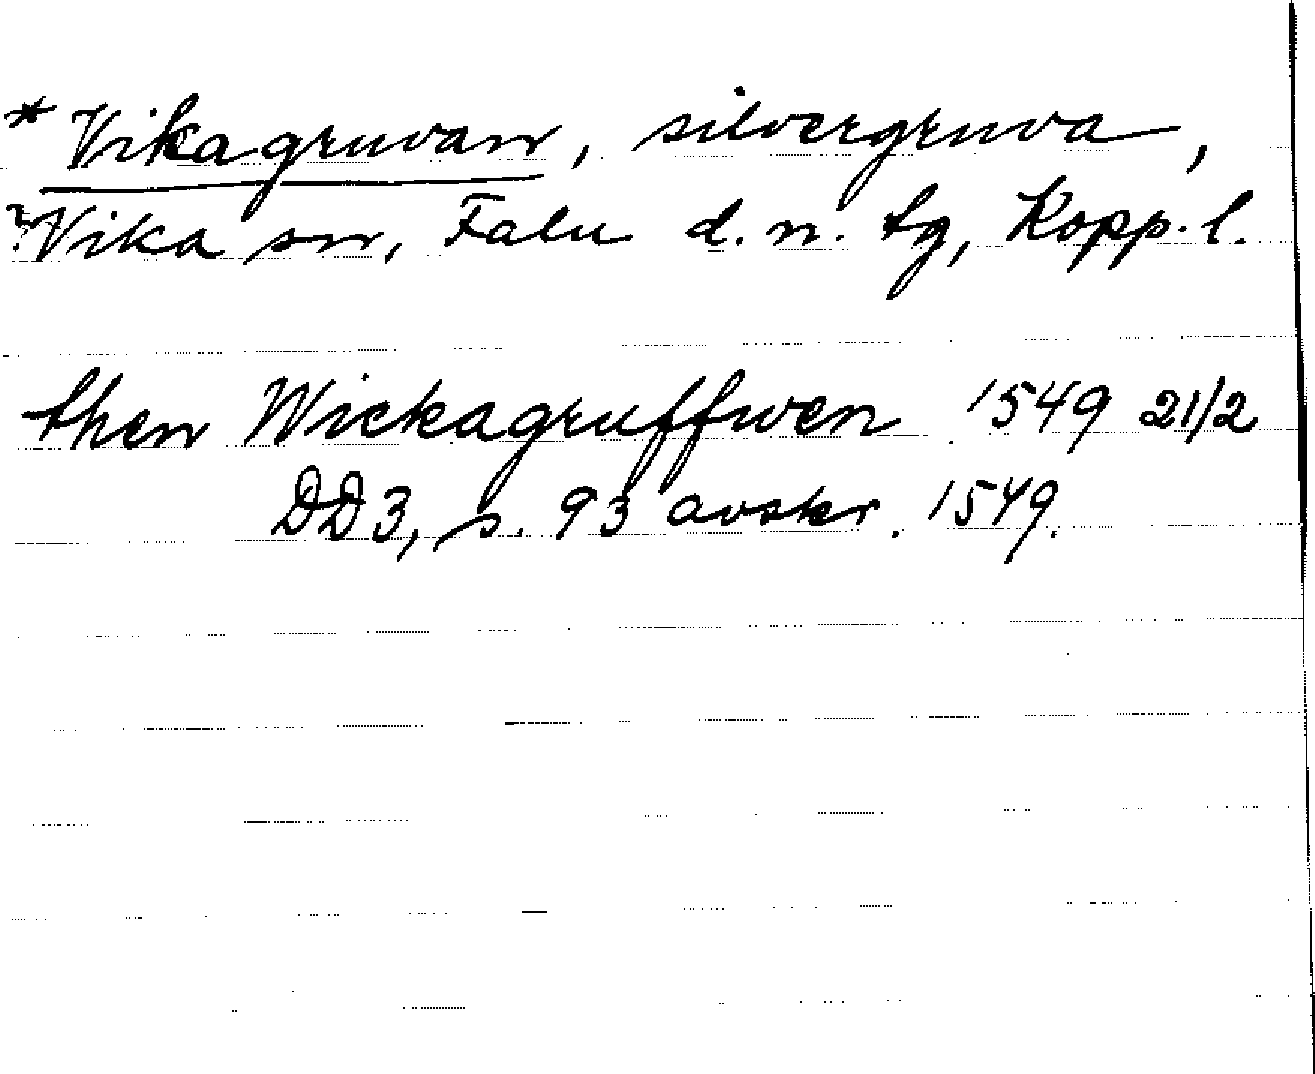 * Vikagruvan, silvergruva,
? Vika sn, Falu d. n. tg, Kopp. l.
then Wickagruffwen 1549 21/2
DD3, s. 93 avskr. 1549.